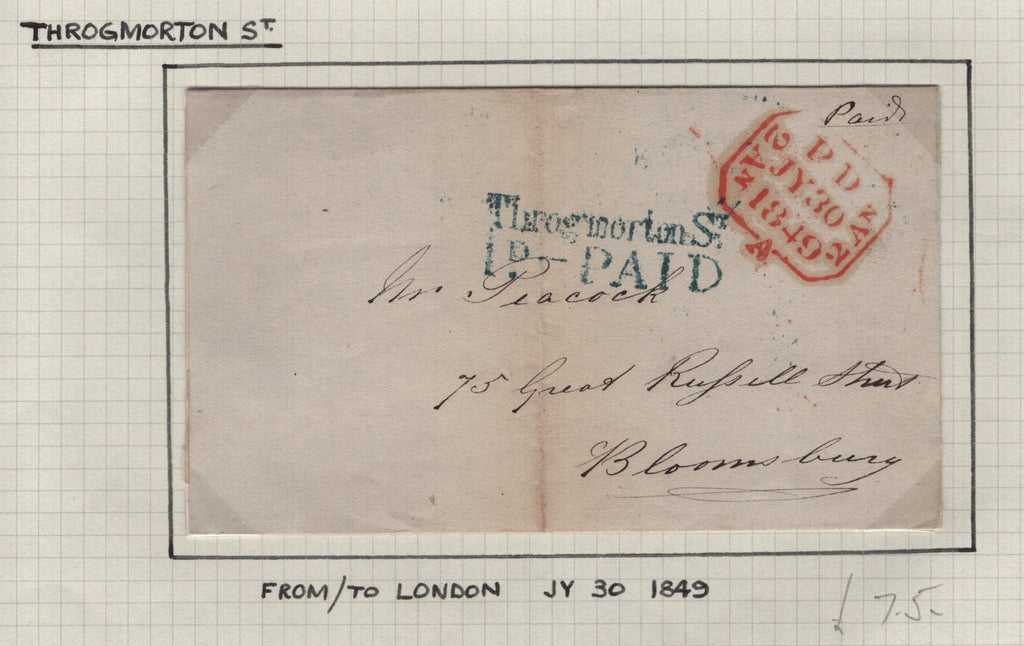 THROGMORTON ST.
Paid
P D
2 AN 2 AN
JY 30
1849
A
Throgmorton St.
1D – PAID
Mr Peacock
75 Great Russell Street
Bloomsbury
FROM/TO LONDON JY 30 1849
£ 75-